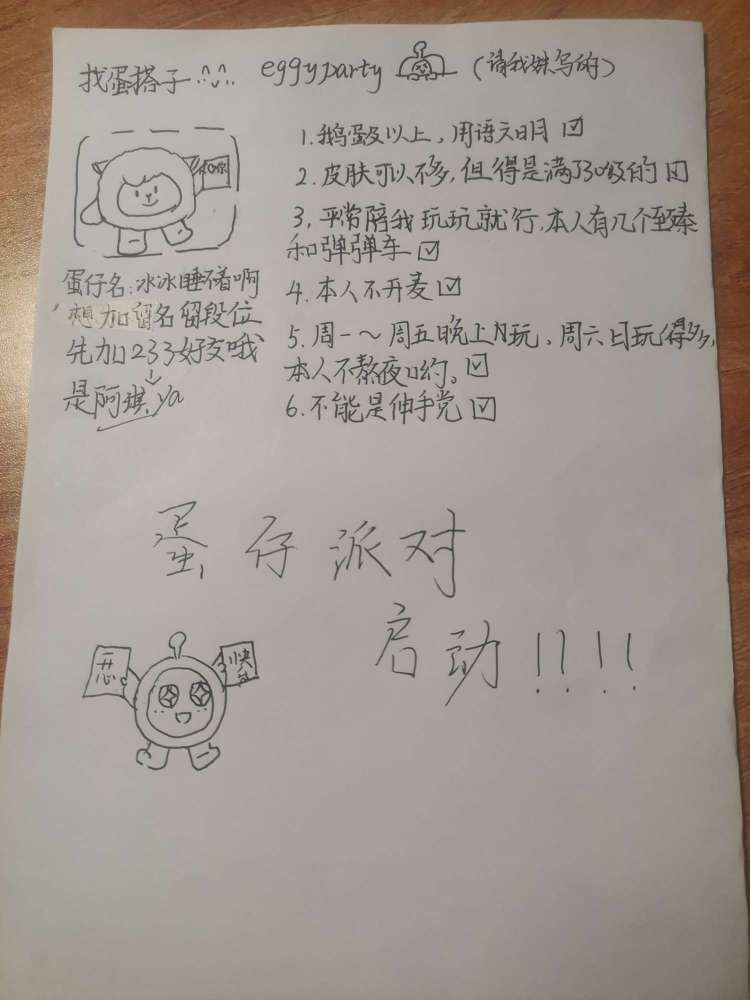 找蛋搭子 eggyparty (请我妹写的)
1.鹅蛋及以上,用语文明 ☑
2.皮肤可以不多,但得是满30级的 ☑
3,平常陪我玩玩就行,本人有几个至臻
和弹弹车 ☑
4.本人不开麦 ☑
5.周一~周五晚上8玩、周六日玩得多,
本人不熬夜哟。☑
6.不能是伸手党 ☑
蛋仔名:冰冰睡不着啊
想加留名留段位
先加233好友哦
是阿琪 ya
蛋仔派对
启动!!!!
开心
快乐